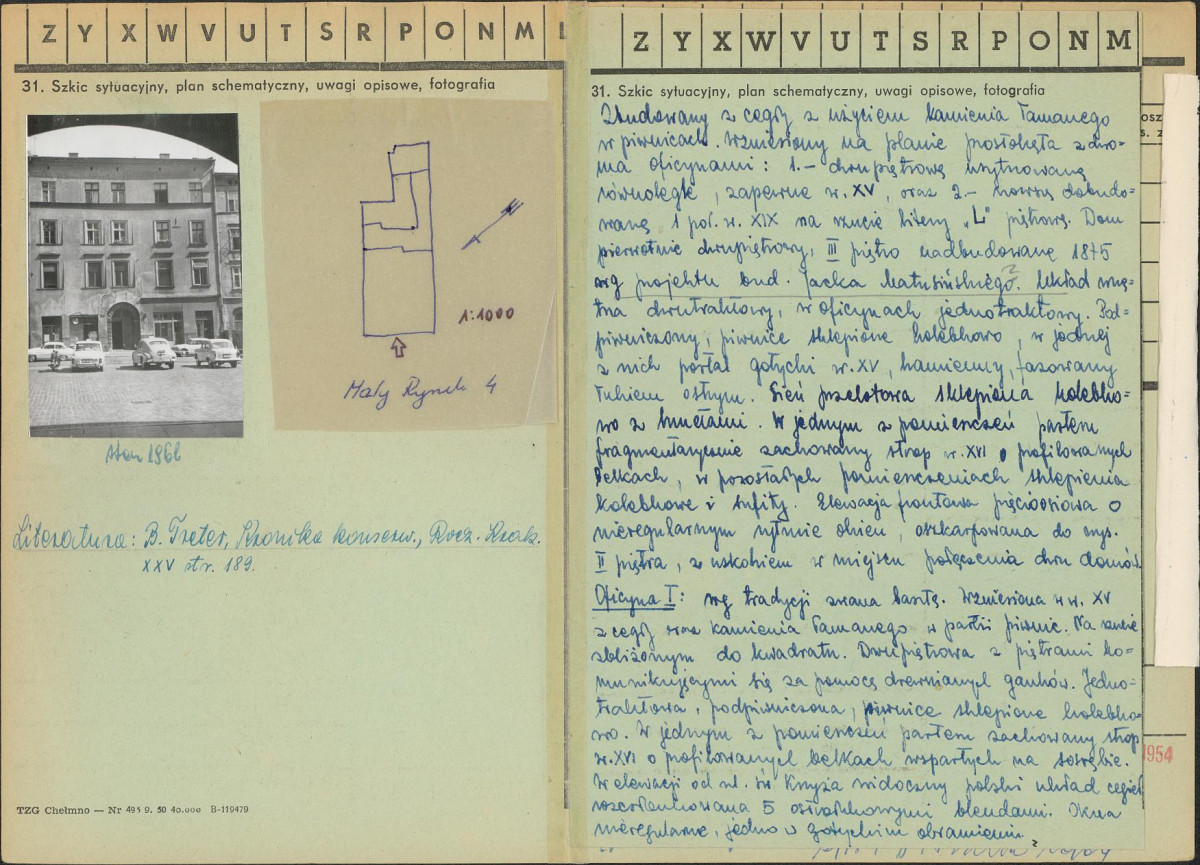 Z Y X W V U T S R P O N M L
31. Szkic sytuacyjny, plan schematyczny, uwagi opisowe, fotografia
1:1000
Mały Rynek 4
stan 1966
Literatura: B. Treter, Kronika konserw., Rocz. Krak.
XXV str. 189.
TZG Chełmno — Nr 495 9. 50 40.000 B-119479
Z Y X W V U T S R P O N M
31. Szkic sytuacyjny, plan schematyczny, uwagi opisowe, fotografia
Zbudowany z cegły z użyciem kamienia łamanego
w piwnicach. Wzniesiony na planie prostokąta z dwo=
ma oficynami: 1.- dwupiętrową usytuowaną
równolegle, zapewne w. XV, oraz 2.- nowszą dobudo=
waną 1 poł. w. XIX na rzucie litery „L" piętrową. Dom
pierwotnie dwupiętrowy, III piętro nadbudowane 1875
wg projektu bud. Jacka Matusińskiego. Układ wnę=
trza dwutraktowy, w oficynach jednotraktowy. Pod=
piwniczony, piwnice sklepione kolebkowo, w jednej
z nich portal gotycki w. XV, kamienny, fazowany
łukiem ostrym. Sień przelotowa sklepiona kolebko=
wo z lunetami. W jednym z pomieszczeń parteru
fragmentarycznie zachowany strop w. XVI o profilowanych
belkach, w pozostałych pomieszczeniach sklepienia
kolebkowe i sufity. Elewacja frontowa pięcioosiowa o
nieregularnym rytmie okien, oszkarpowana do wys.
II piętra, z uskokiem w miejscu połączenia dwu domów.
Oficyna I: wg tradycji zwana basztą. Wzniesiona w w. XV
z cegły oraz kamienia łamanego w partii piwnic. Na rzucie
zbliżonym do kwadratu. Dwupiętrowa z piętrami ko=
munikującymi się za pomocą drewnianych ganków. Jedno=
traktowa, podpiwniczona, piwnice sklepione kolebko=
wo. W jednym z pomieszczeń parteru zachowany strop
w. XVI o profilowanych belkach wspartych na sosrębie.
W elewacji od ul. św. Krzyża widoczny polski układ cegieł
rozczłonkowana 5 ostrołukowymi blendami. Okna
nieregularne, jedno w gotyckim obramieniu.
1954